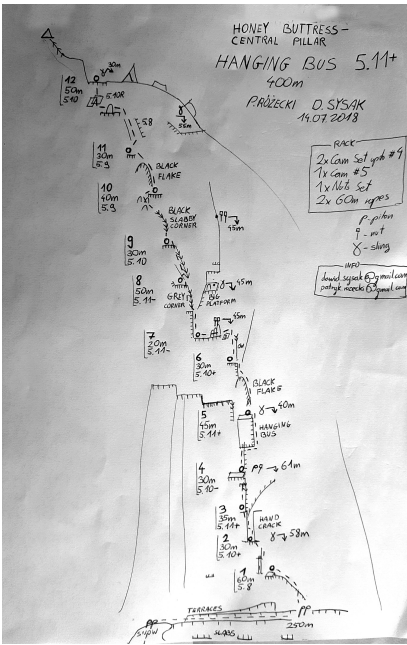 HONEY BUTTRESS-
CENTRAL PILLAR
HANGING BUS 5.11+
400m
P.RÓŻECKI D.SYSAK
14.07.2018
RACK
2xCam Set upto #4
1xCam #5
1xNuts Set
2x 60m ropes
P-piton
-nut
-sling
INFO
dawid.sysak@gmail.com
30m
12
50m
5.10
5.10R
5.8
55m
11
30m
5.9
BLACK
FLAKE
10
40m
5.9
BLACK
SLABBY
CORNER
45m
9
30m
5.10
8
50m
5.11-
GREY
CORNER
45m
BIG
PLATFORM
45m
7
20m
5.11-
OW
6
30m
5.10+
BLACK
FLAKE
5
45m
5.11+
40m
HANGING
BUS
4
30m
5.10-
61m
3
35m
5.11+
HAND
CRACK
2
30m
5.10+
58m
1
60m
5.8
TERRACES
PP
PP
250m
SLABS